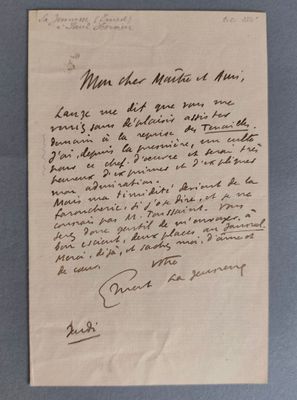 La Jeunesse (Ernest)
à Paul Hervieu
Mon cher Maître et Ami,
me dit que vous me
sans déplaisir assister
demain à la reprise des Tenailles.
J'ai, depuis la première, un culte
pour ce chef-d'œuvre et serai très
heureux d'exprimer et d'expliquer
mon admiration.
Mais ma timidité devient de la
si j'ose dire, et je ne
connais pas M. Toussaint. Vous
donc gentil de m'envoyer, à
bon escient, deux places au Journal.
Merci, déjà, et sachez-moi, d'âme et
de cœur,
votre
Ernest La Jeunesse
Jeudi